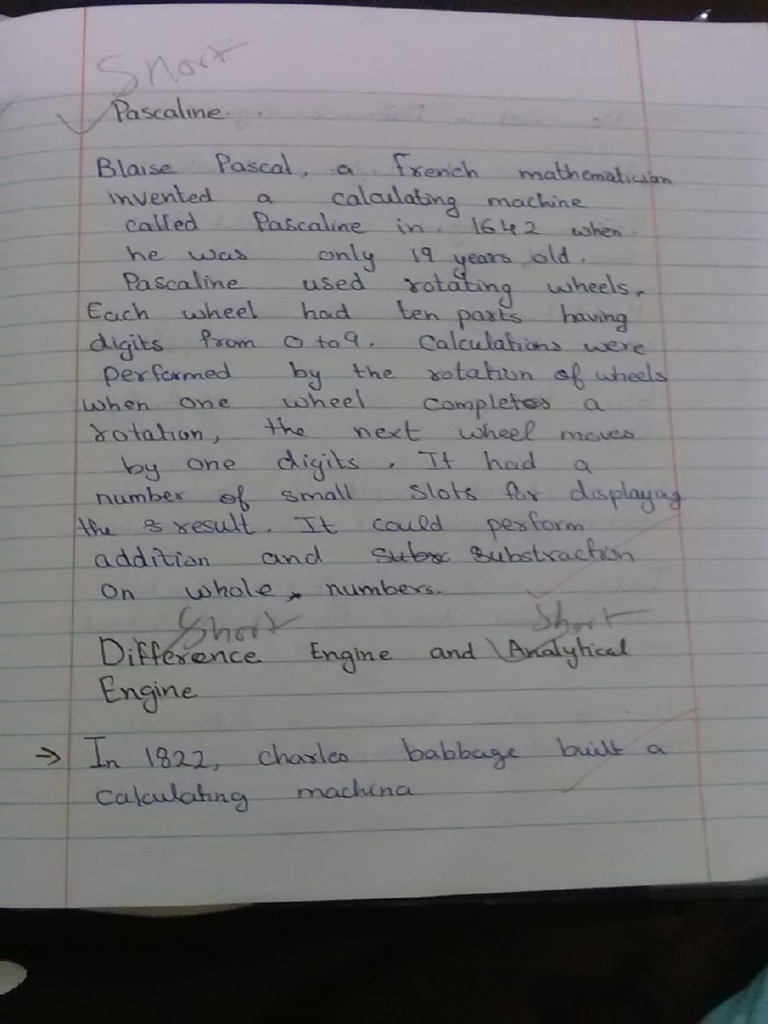 Short
Pascaline.
Blaise Pascal, a french mathematician
invented a calculating machine
called Pascaline in 1642 when
he was only 19 years old.
Pascaline used rotating wheels.
Each wheel had ten parts having
digits from 0 to 9. Calculations were
performed by the rotation of wheels
when one wheel completes a
rotation, the next wheel moves
by one digits. It had a
number of small slots for displaying
the result. It could perform
addition and substraction
on whole numbers.
Short Short
Difference Engine and Analytical
Engine
→ In 1822, charles babbage built a
calculating machina